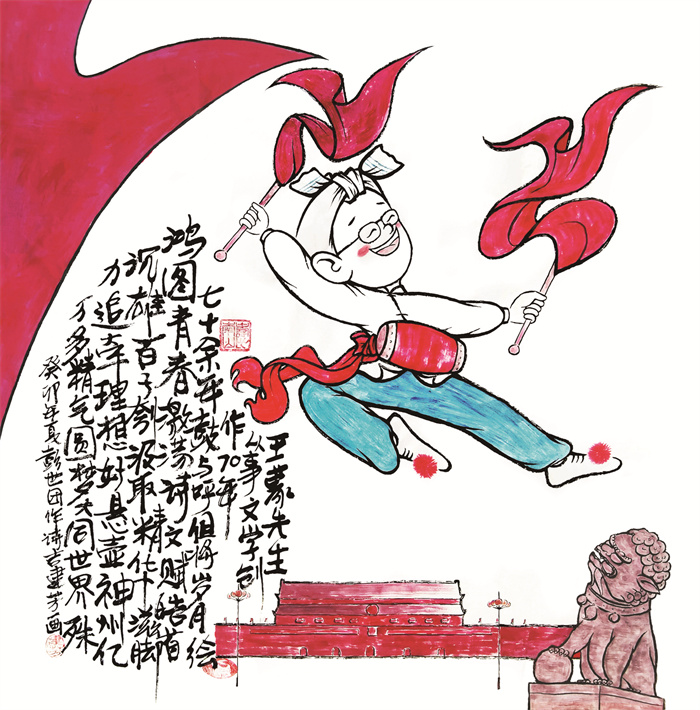 王蒙先生
从事文学创
作70年
七十余年鼓与呼但将岁月绘
鸿图青春激荡诗文赋皓首
沉雄百子刳汲取精华滋脚
力追牵理想好悬壶神州亿
万多精气圆梦大同世界殊
癸卯年夏彭世团作诗吉建芳画